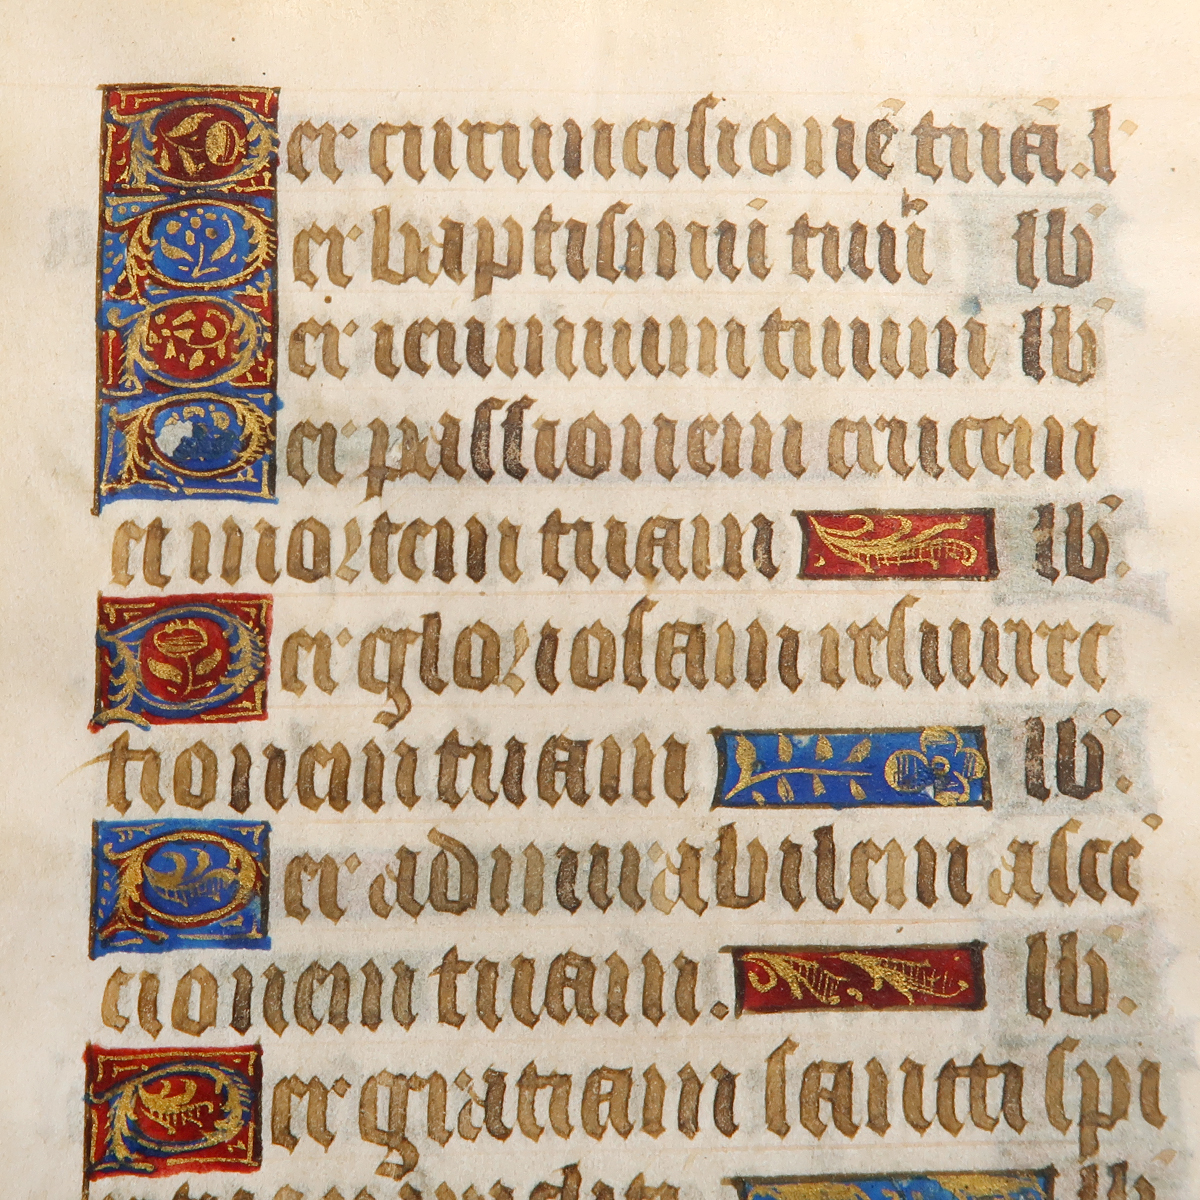 Per circuncisionē tuā. l'
Per baptismū tuū lb'
Per ieiunium tuum lb'
Per passionem crucem
et mortem tuam lb'.
Per gloriosam resurrec
tionem tuam lb'.
Per admirabilem ascē
cionem tuam. lb'.
Per gratiam sancti spi